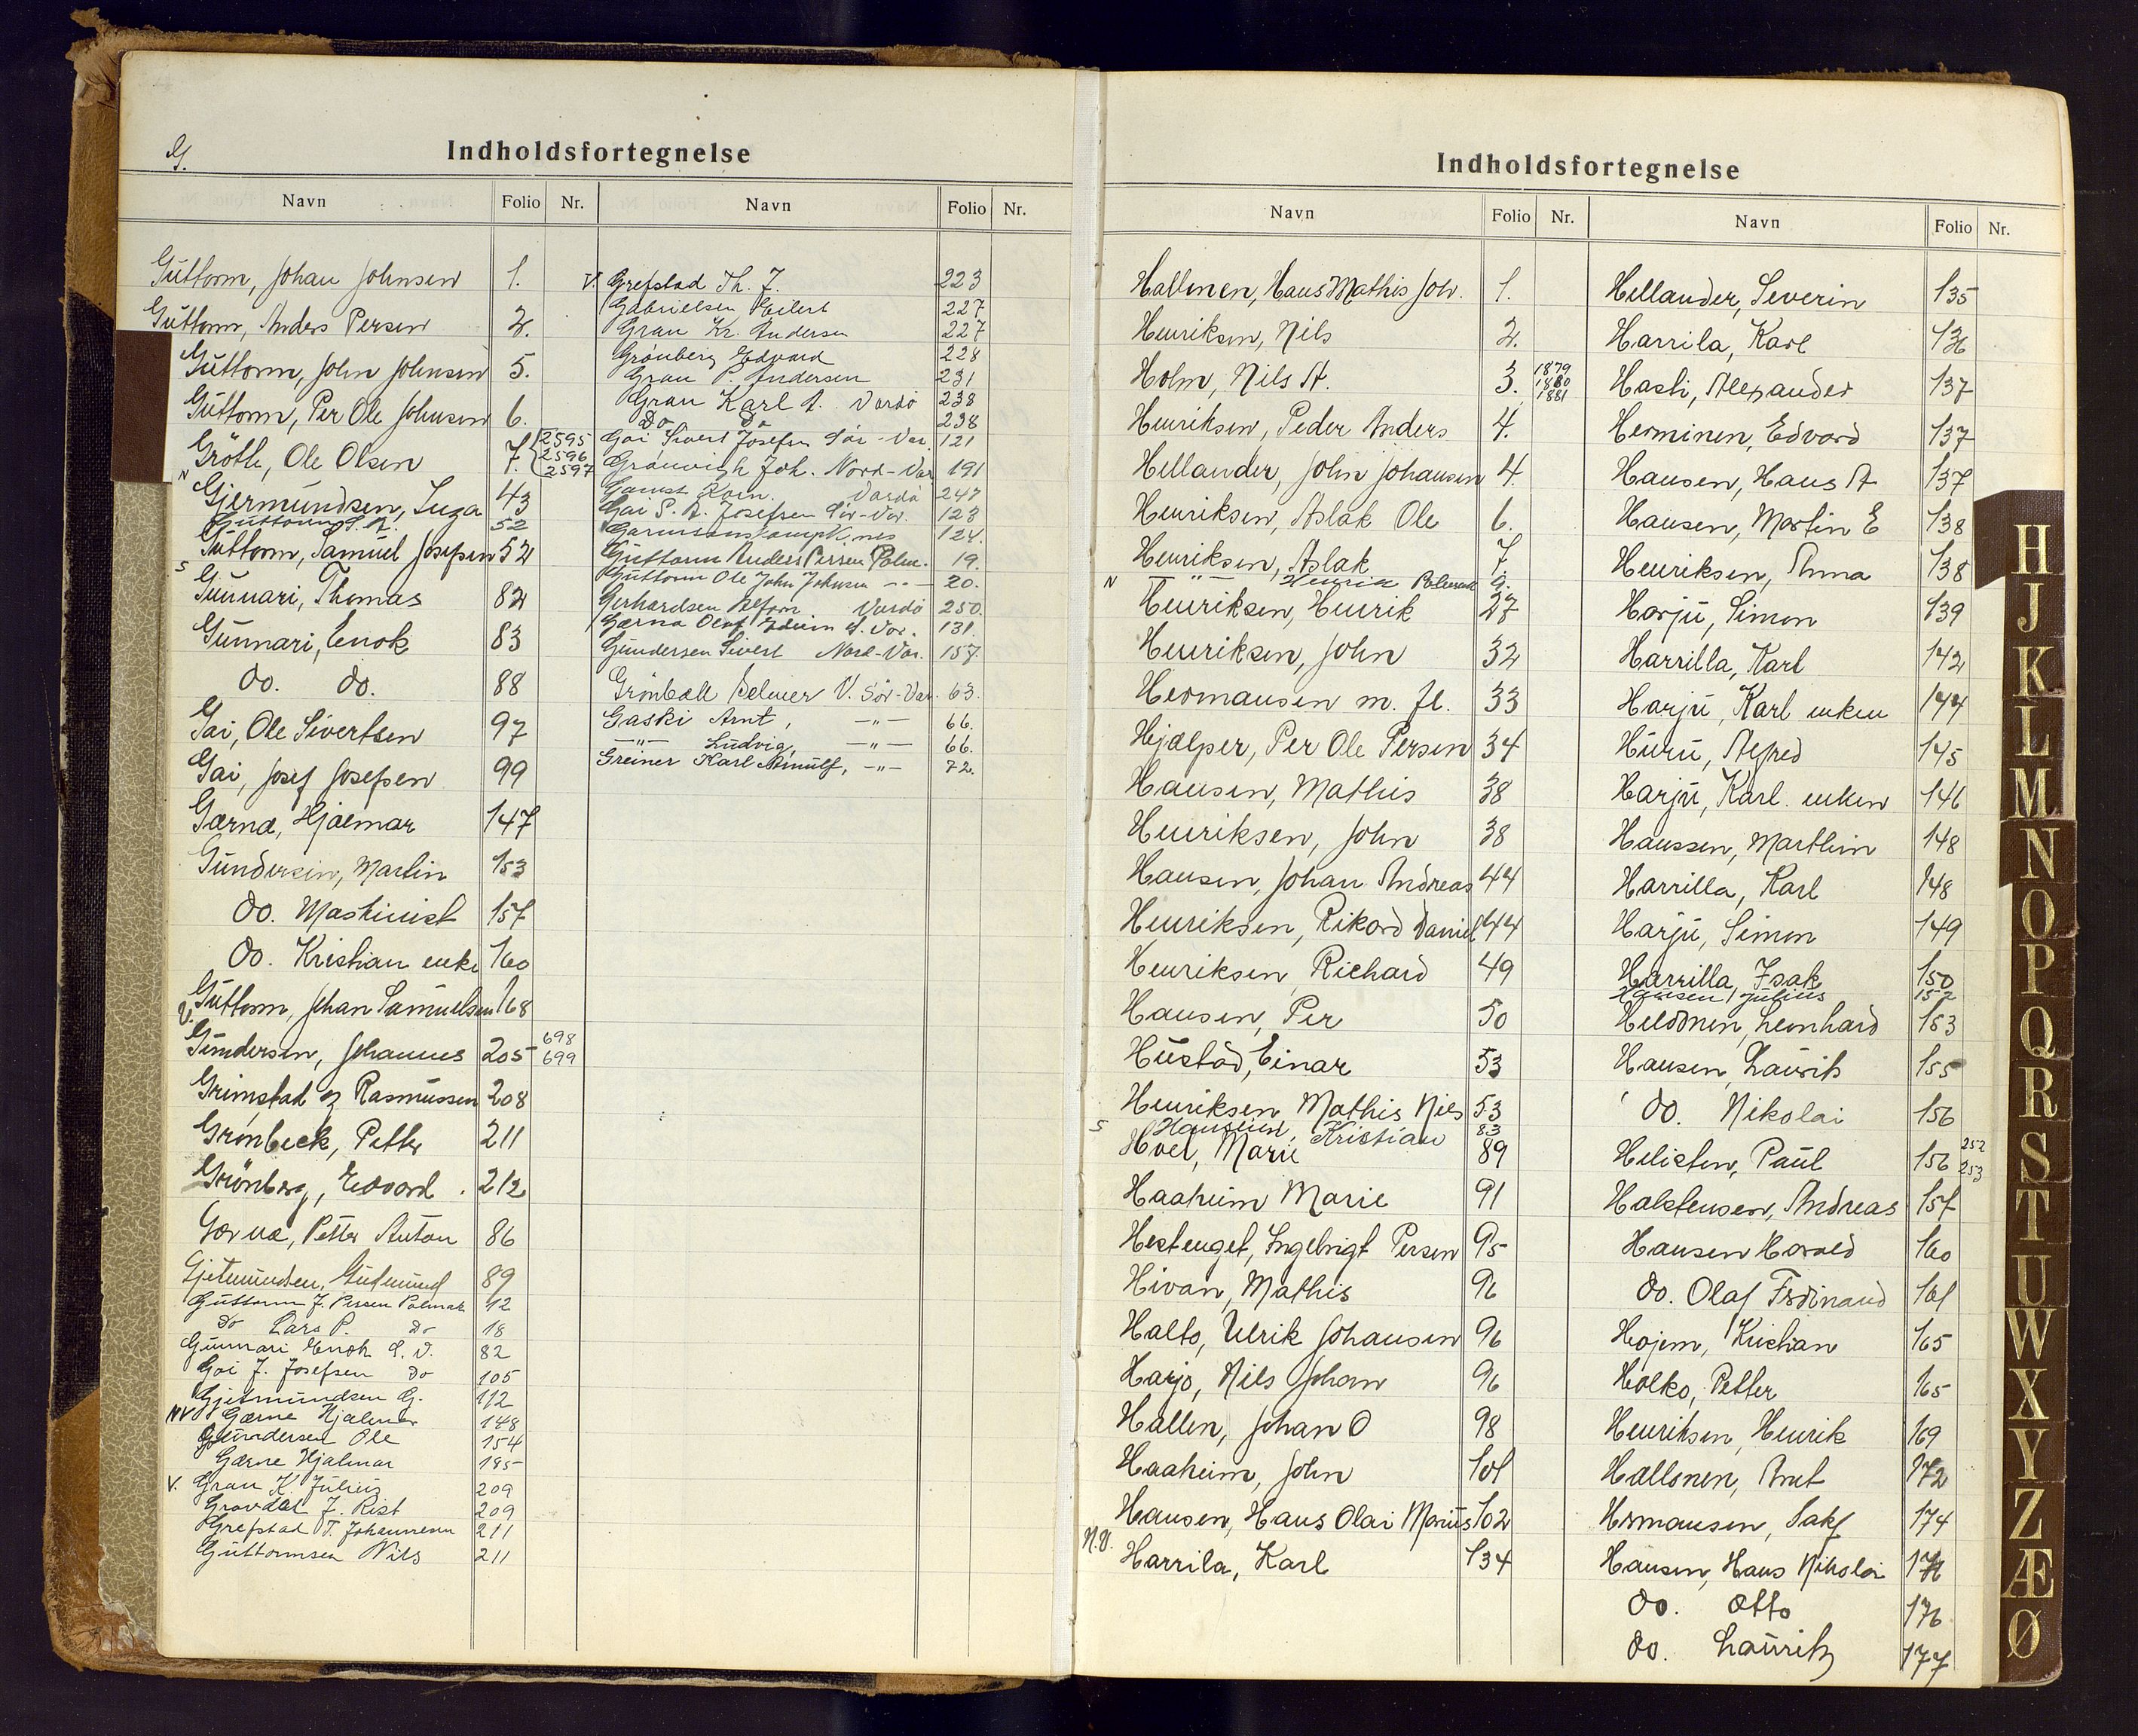 G.
Indholdsfortegnelse
Navn Folio Nr. Navn Folio Nr.
Guttorm, Johan Johnsen 1.
Guttorm, Anders Persen 2.
Guttorm, John Johnsen 5.
Guttorm, Per Ole Johnsen 6.
Gröthe, Ole Olsen 7. 2595
2596
2597
N
Gjermundsen, Inga 43
Guttorm S. A. 52
Guttorm, Samuel Josefsen 52
S
Gunnari, Thomas 82
Gunnari, Enok 83
do. do. 88
Gai, Ole Sivertsen 97
Gai, Josef Josefsen 99
Gærnæ, Hjalmar 147
Gundersen, Martin 153
do. Maskinist 157
do. Kristian enke 160
Guttorm, Johan Samuelsen 168
V.
Gundersen, Johannes 205 698
699
Grimstad og Rasmussen 208
Grönbeck, Petter 211
Grönberg, Edvard 212
Gærnæ, Petter Anton 86
Gjetmundsen, Gudmund 89
Guttorm J. Persen Polmak 12
do Lars P. do 18
Gunnari Enok S. V. 82
Gai J. Josefsen do 105
Gjetmundsen G. 112
NV Gærne Hjalmar 148
Gundersen Ole 154
Gærne Hjalmar 185
V. Grau K. Julius 209
Gravdal J. Rist 209
Grefstad T. Johannesen 211
Guttormsen Nils 211
V. Grefstad Th. J. 223
Gabrielsen Eilert 227
Grau Kr. Andersen 227
Grönberg Edvard 228
Grau P. Andersen 231
Grau Karl A. Vardö 238
Do Do 238
Gai Sivert Josefsen Sör-Var. 121
Grönvigh Joh. Nord-Var 191
Gamst Korn. Vardö 247
Gai S. A. Josefsen Sör-Var. 123
124.
Guttorm Anders Persen Polm. 19.
Guttorm Ole John Johnsen -"- 20.
Gerhardsen Alfon. Vardö 250.
Gærna Olaf Edvin S. Var. 131.
Gundersen Sivert Nord-Var. 157.
Grönbæk Selmer V. Sör-Var. 63.
Gaski Arnt, -"- 66.
-"- Ludvig, -"- 66.
Greiner Karl Arnulf, -"- 72.
Indholdsfortegnelse
Navn Folio Nr. Navn Folio Nr.
Hallonen, Hans Mathis Joh. 1.
Henriksen, Nils 2.
Holm, Nils A. 3. 1879
1880
1881
Henriksen, Peder Anders 4.
Hellander, John Johansen 4.
Henriksen, Aslak Ole 6.
Henriksen, Aslak 7
N -"- Henrik Polmak 9.
Henriksen, Henrik 27
Henriksen, John 32
Hermansen m. fl. 33
Hjælper, Per Ole Persen 34
Hansen, Mathis 38
Henriksen, John 38
Hansen, Johan Andreas 44
Henriksen, Rikard Daniel 44
Henriksen, Richard 49
Hansen, Per 50
Hustad, Einar 53
Henriksen Mathis Nils 53
S Hansen, Kristian 83
Hoel, Marie 89
Haaheim Marie 91
Hestenget, Ingebrigt Persen 95
Hivan, Mathis 96
Halto, Ulrik Johansen 96
Harjo, Nils Johan 96
Hallen, Johan O 98
Haaheim, John 101
Hansen, Hans Olai Marius 102
N.V.
Harrila, Karl 134
Hellander, Severin 135
Harrila, Karl 136
Hasti, Alexander 137
Herminen, Edvard 137
Hansen, Hans A 137
Hansen, Martin E 138
Henriksen, Anna 138
Harju, Simon 139
Harrilla, Karl 142
Harju, Karl enken 144
Huru, Alfred 145
Harju, Karl. enken 146
Hanssen, Marthin 148
Harrilla, Karl 148
Harju, Simon 149
Harrilla, Isak 150
Hansen Julius 152
Heldonen, Leonhard 153
Hansen, Laurits 155
do. Nikolai 156
Helisten, Paul 156 252
253
Halstensen, Andreas 157
Hansen Harald 160
do. Olaf Ferdinand 161
Hojem, Kristian 165
Holko, Petter 165
Henriksen, Henrik 169
Hallonen, Arnt 172
Hermansen, Jakf 174
Hansen, Hans Nikolai 176
do. Otto 176
do. Lauritz 177
H
J
K
L
M
N
O
P
Q
R
S
T
U
W
X
Y
Z
Æ
Ø